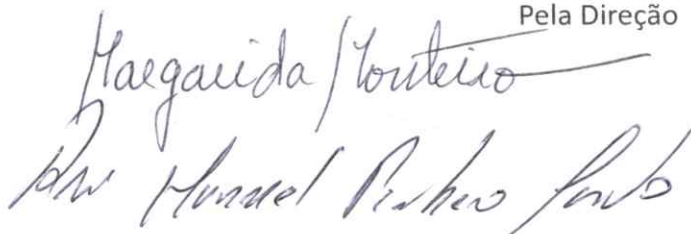 Pela Direção
Margarida Monteiro
Manuel Pinheiro